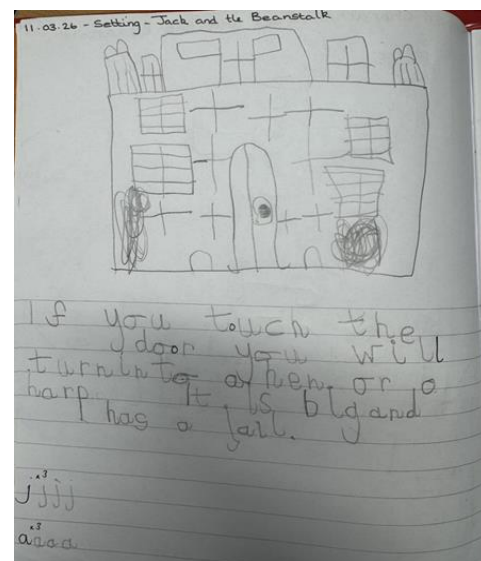 11.03.26 - Setting - Jack and the Beanstalk
If you touch the
door you will
turn into a hen. or a
harp. It is big and
has a jail.
x3
jjjj
x3
aaaa